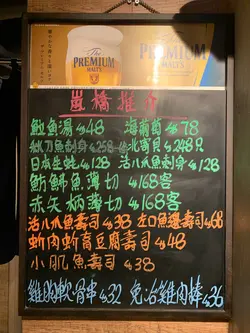 The
PREMIUM
MALT'S
The
PREMIUM
MALT'S
崗橋推介
魚湯 $48 海葡萄 $78
秋刀魚刺身 $258 北寄貝 $248只
日本生蚝 $128 活八爪魚刺身 $128
魚薄切 $168客
赤矢柄薄切 $168客
活八爪魚壽司 $38 左口魚邊壽司 $68
蚧肉蚧膏豆腐壽司 $48
小肌魚壽司 $38
雞胸軟骨串 $32 免治雞肉棒 $36